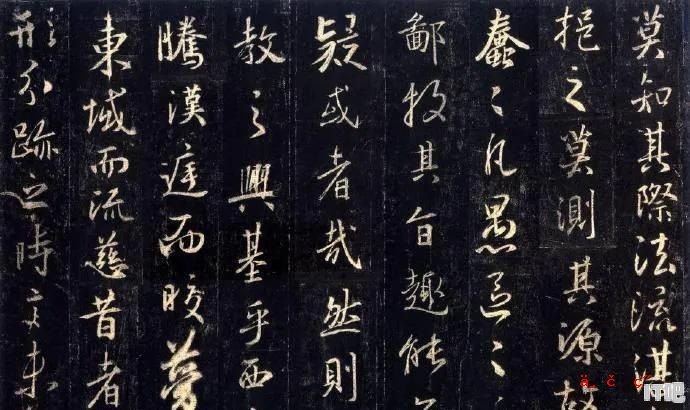 莫知其際法流湛
挹之莫測其源故
蠢〻凡愚區〻
鄙投其旨趣能
疑或者哉然則
教之興基乎西
騰漢庭而皎夢
東域而流慈昔者
形分跡之時言未
IT吧